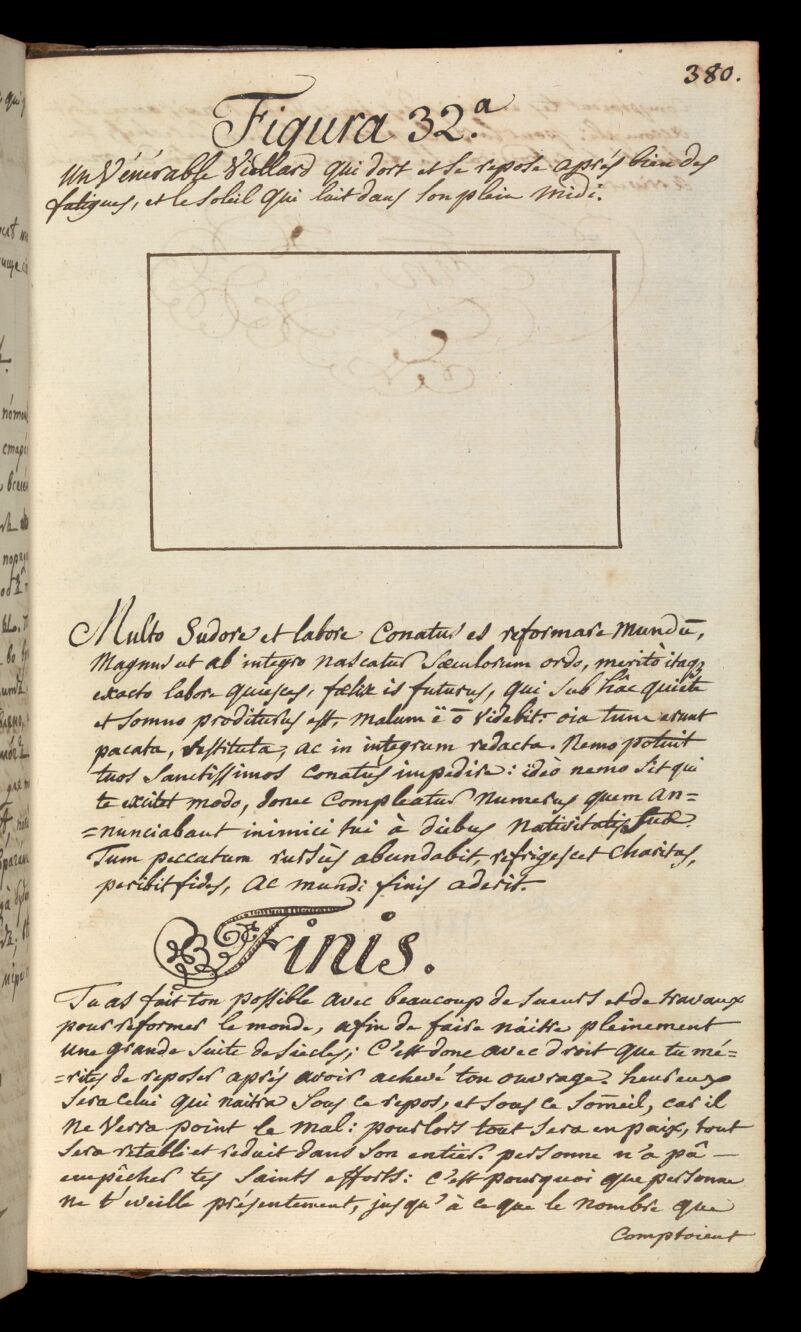 380.
Figura 32.a
Un Vénérable Viellard qui dort et se repose aprés bien des
fatigues, et le Soleil qui luit dans son plein midi.
Multo Sudore et labore Conatus es reformare Mundū,
Magnus ut ab integro nascatur Sæculorum ordo, meritò itaqz
exacto labore quiesces, fœlix is futurus, qui Sub hâc quiete
et Somno proditurus est, malum ē ō videbit. oīa tunc erunt
pacata, restituta, ac in integrum redacta. Nemo potuit
tuos Sanctissimos Conatus impedire: ideò nemo Sit qui
te excitet modo, donec Compleatur Numerus quem An=
=nunciabant inimici tui à diebus Nativitatis Suæ.
Tum peccatum rursùs abundabit, refrigescet Charitas,
peribit fides, ac mundi finis aderit.
Finis.
Tu as fait ton possible avec beaucoup de Sueurs et de travaux
pour reformer le monde, afin de faire náitre pleinement
une grande Suite de Siecles; C'est donc avec droit que tu mé=
=rites de reposer aprés avoir achevé ton ouvrage. heureux
Sera Celui qui naitra Sous ce repos, et Sous ce Som̄eil, car il
ne Verra point le mal: pour lors tout Sera en paix, tout
Sera retabli et reduit dans Son entier. personne n'a pû
empêcher tes Saints efforts: c'est pourquoi que personne
ne t'eveille présentement, jusqu'à ce que le nombre que
Comptoient